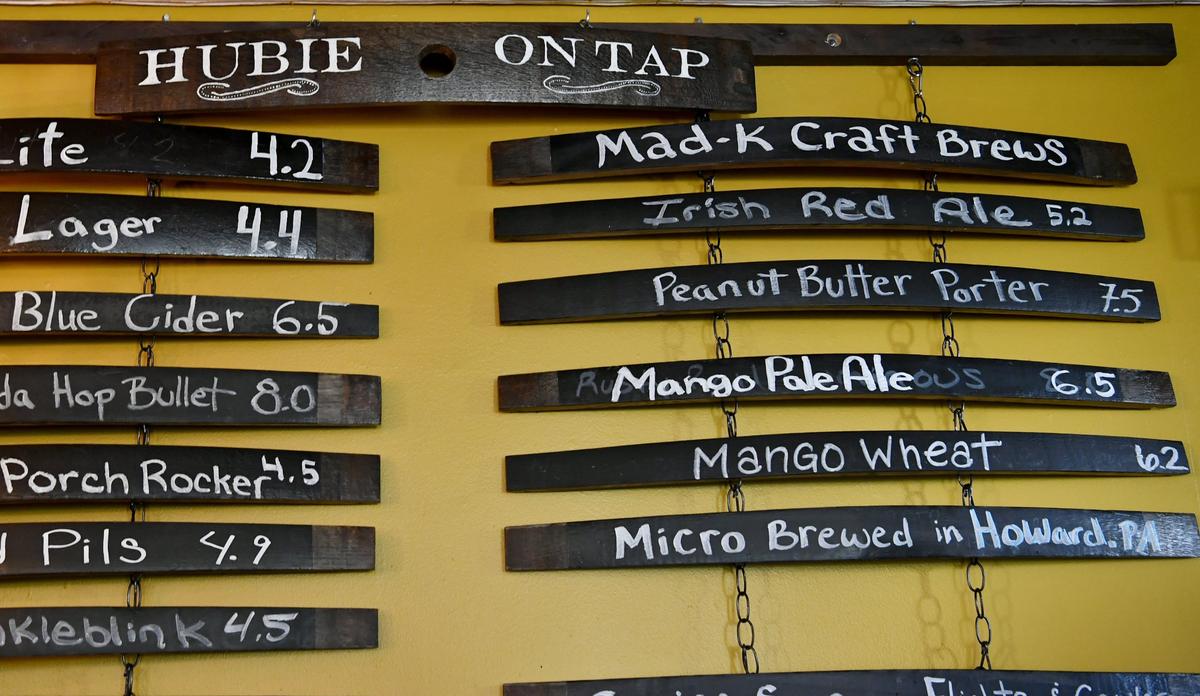 HUBIE ON TAP
Lite 4.2
Lager 4.4
Blue Cider 6.5
Hop Bullet 8.0
Porch Rocker 4.5
Pils 4.9
4.5
Mad-K Craft Brews
Irish Red Ale 5.2
Peanut Butter Porter 7.5
Mango Pale Ale 6.5
Mango Wheat 6.2
Micro Brewed in Howard. PA